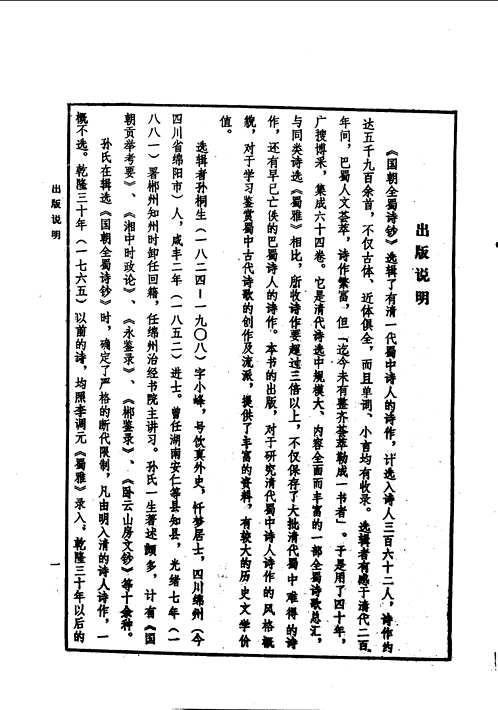 出版说明
《国朝全蜀诗钞》选辑了有清一代蜀中诗人的诗作，计选入诗人三百六十二人，诗作约
达五千九百余首，不仅古体、近体俱全，而且单词、小言均有收录。选辑者有感于清代二百
年间，巴蜀人文荟萃，诗作繁富，但「迄今未有整齐荟萃勒成一书者」。于是用了四十年，
广搜博采，集成六十四卷。它是清代诗选中规模大、内容全面而丰富的一部全蜀诗歌总汇，
与同类诗选《蜀雅》相比，所收诗作要超过三倍以上，不仅保存了大批清代蜀中难得的诗
作，还有早已亡佚的巴蜀诗人的诗作。本书的出版，对于研究清代蜀中诗人诗作的风格概
貌，对于学习鉴赏蜀中古代诗歌的创作及流派，提供了丰富的资料，有较大的历史文学价
值。
选辑者孙桐生（一八二四—一九〇八）字小峰，号饮真外史，忏梦居士，四川绵州（今
四川省绵阳市）人，咸丰二年（一八五二）进士。曾任湖南安仁等县知县，光绪七年（一
八八一）署郴州知州时卸任回籍，任绵州治经书院主讲习。孙氏一生著述颇多，计有《国
朝贡举考要》、《湘中时政论》、《永鉴录》、《郴鉴录》、《卧云山房文钞》等十余种。
孙氏在辑选《国朝全蜀诗钞》时，确定了严格的断代限制，凡由明入清的诗人诗作，一
概不选。乾隆三十年（一七六五）以前的诗，均照李调元《蜀雅》录入。乾隆三十年以后的
出版说明
一